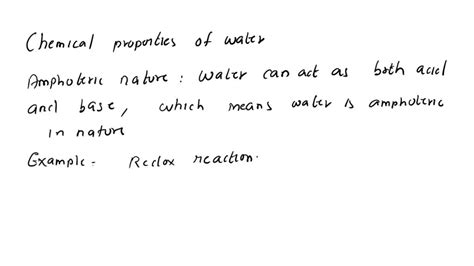 Chemical properties of water
Amphoteric nature : Water can act as both acid
and base, which means water is amphoteric
in nature
Example - Redox reaction.